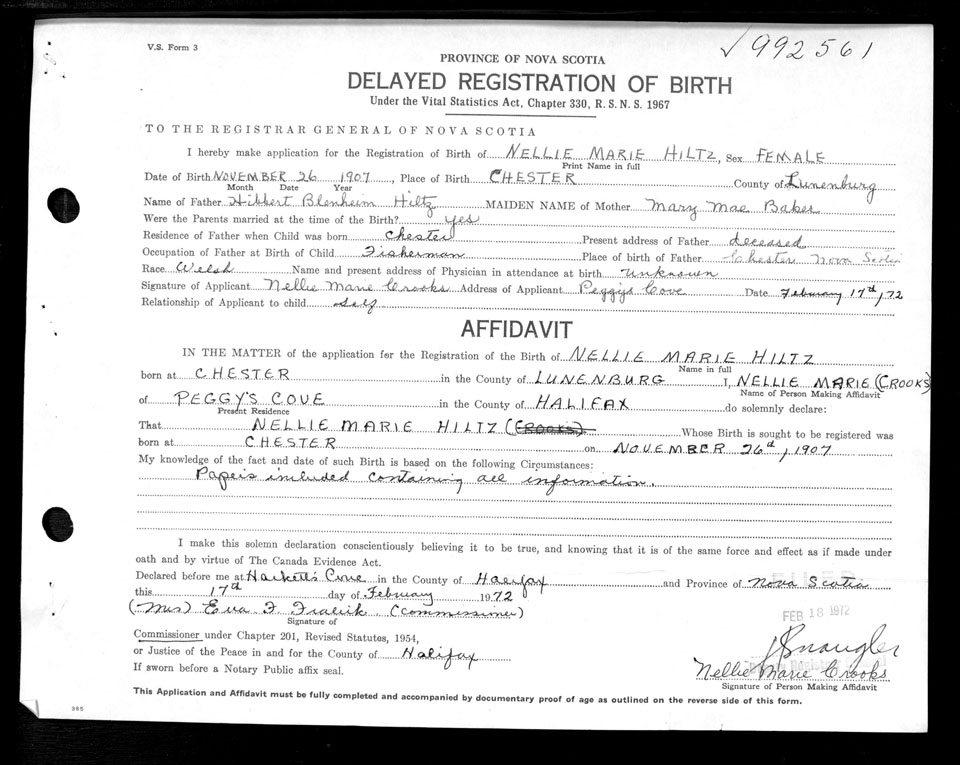 V.S. Form 3
✓992561
PROVINCE OF NOVA SCOTIA
DELAYED REGISTRATION OF BIRTH
Under the Vital Statistics Act, Chapter 330, R.S.N.S. 1967
TO THE REGISTRAR GENERAL OF NOVA SCOTIA
I hereby make application for the Registration of Birth of NELLIE MARIE HILTZ, Sex FEMALE
Print Name in full
Date of Birth NOVEMBER 26 1907, Place of Birth CHESTER County of Lunenburg
Month Date Year
Name of Father Hibbert Blenheim Hiltz MAIDEN NAME of Mother Mary Mae Baker
Were the Parents married at the time of the Birth? yes
Residence of Father when Child was born Chester Present address of Father deceased
Occupation of Father at Birth of Child Fisherman Place of birth of Father Chester Nova Scotia
Race Welsh Name and present address of Physician in attendance at birth unknown
Signature of Applicant Nellie Marie Crooks Address of Applicant Peggys Cove Date February 17th, 72
Relationship of Applicant to child self
AFFIDAVIT
IN THE MATTER of the application for the Registration of the Birth of NELLIE MARIE HILTZ
Name in full
born at CHESTER in the County of LUNENBURG I, NELLIE MARIE (CROOKS)
Name of Person Making Affidavit
of PEGGY'S COVE in the County of HALIFAX do solemnly declare:
Present Residence
That NELLIE MARIE HILTZ (CROOKS) Whose Birth is sought to be registered was
born at CHESTER on NOVEMBER 26th, 1907
My knowledge of the fact and date of such Birth is based on the following Circumstances:
Papers included containing all information.
I make this solemn declaration conscientiously believing it to be true, and knowing that it is of the same force and effect as if made under
oath and by virtue of The Canada Evidence Act.
Declared before me at Hackett's Cove in the County of Halifax and Province of Nova Scotia
this 17th day of February 1972
FEB 18 1972
(Mrs) Eva F Fralick (Commissioner)
Signature of
Commissioner under Chapter 201, Revised Statutes, 1954,
or Justice of the Peace in and for the County of Halifax
If sworn before a Notary Public affix seal.
Nellie Marie Crooks
Signature of Person Making Affidavit
This Application and Affidavit must be fully completed and accompanied by documentary proof of age as outlined on the reverse side of this form.
385